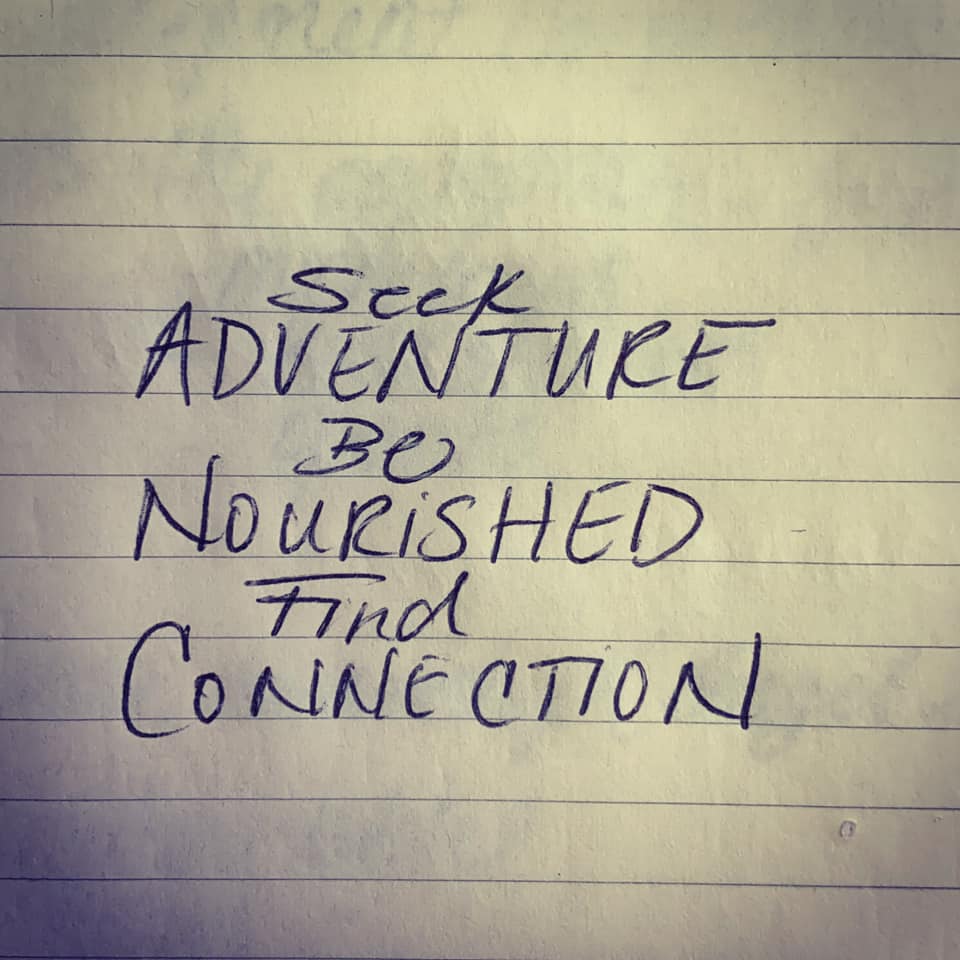 Seek
ADVENTURE
Be
NOURiSHED
Find
CONNECTION